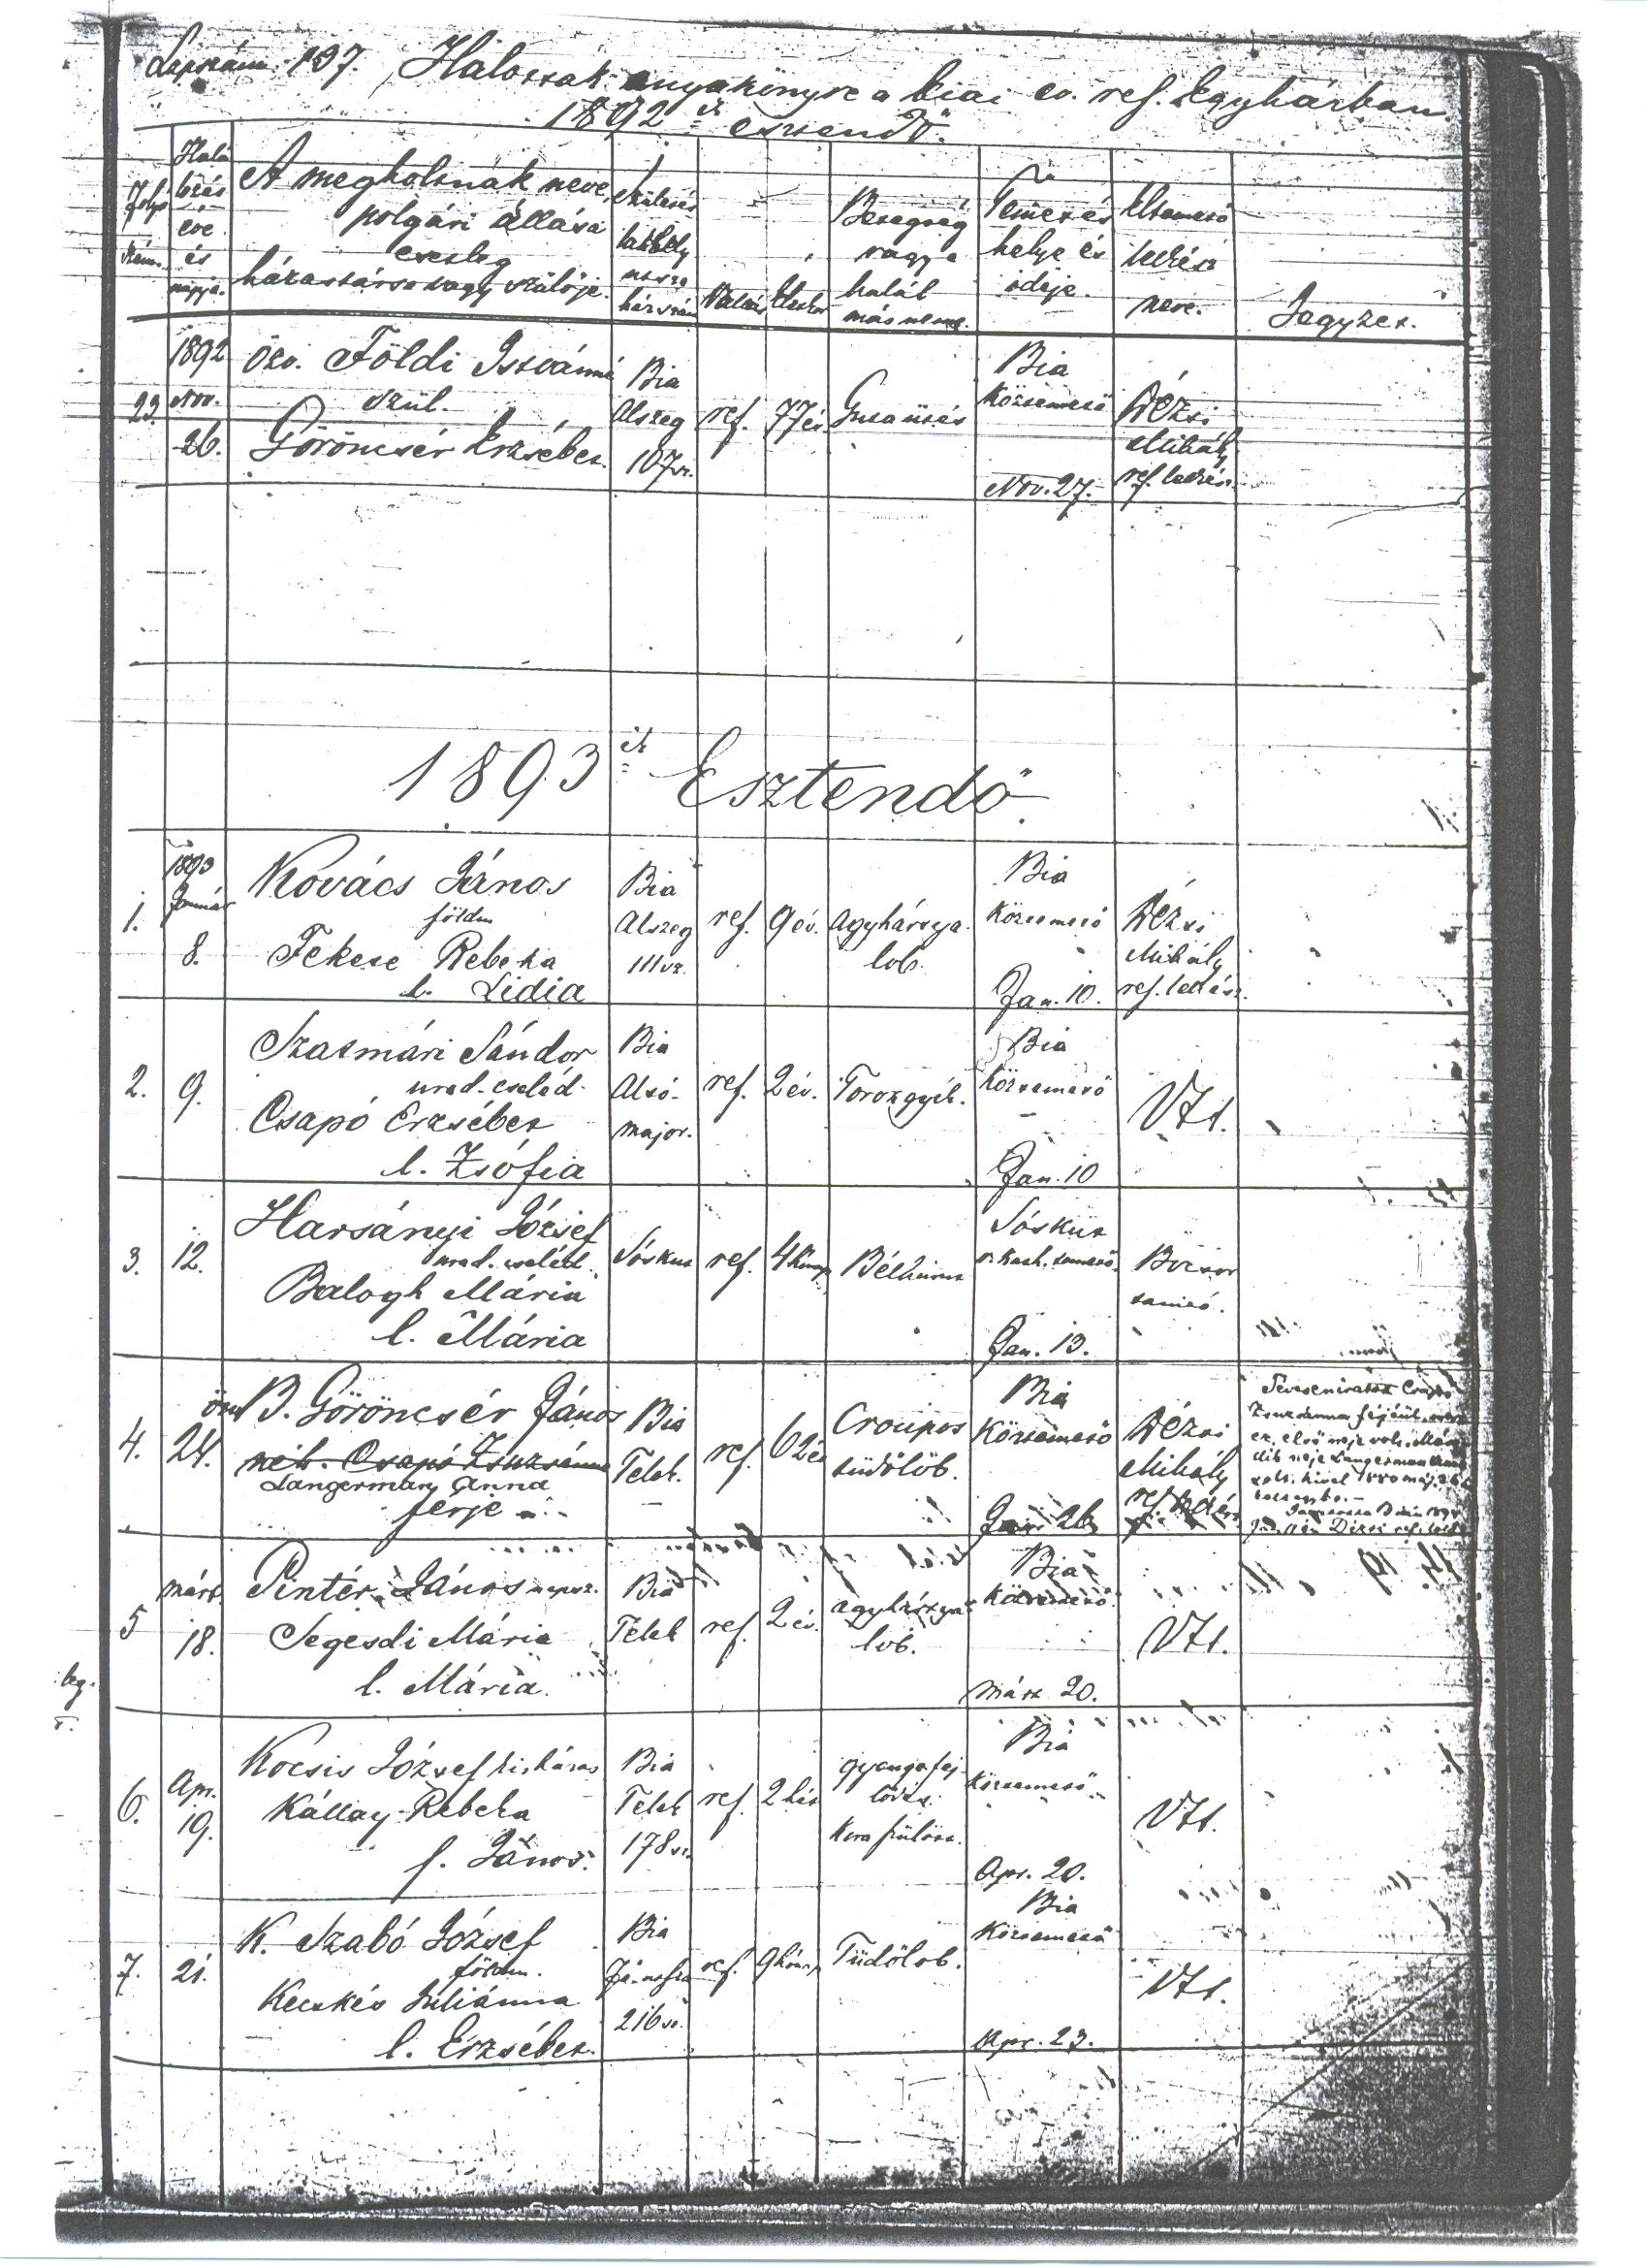 Lapszám 137. Halottak anyakönyve a biai ev. ref. Egyházban
1892 ik esztendő.
Folyó szám.
Halálozás éve és napja.
A megholtnak neve, polgári állása
esetleg
házastársa vagy szülője.
Születés lakhely utcza házszám
Vallás
Életkor
Betegség vagy a halál más neme.
Temetés helye és ideje.
Eltemető lelkész neve.
Jegyzet.
23.
1892
Nov.
26.
Özv. Földi Istvánné
szül.
Göröncsér Erzsébet.
Bia
Alszeg
107sz.
ref.
77 év
Gutaütés
Bia
Köztemető
Nov. 27.
Dézsi
Mihály
ref. lelkész.
1893 ik Esztendő.
1.
1893
Január
8.
Kovács János
földm
Fekete Rebeka
l. Lidia
Bia
Alszeg
111 sz.
ref.
9 év.
Agyhártya
lob.
Bia
Köztemető
Jan. 10.
Dézsi
Mihály
ref. lelkész.
2.
9.
Szatmári Sándor
urad. cseléd.
Csapó Erzsébet
l. Zsófia
Bia
Alsó-
major.
ref.
2 év.
Torokgyík.
Bia
Köztemető
Jan. 10
Uaz.
3.
12.
Harsányi József
urad. cseléd.
Balogh Mária
l. Mária
Sóskut
ref.
4 hónap
Bélhurut
Sóskut
r. kath. temető.
Jan. 13.
tanító.
4.
24.
B. Göröncsér János
néh. Csapó Zsuzsánna
Langermann Anna
férje
Bia
Telek.
ref.
62 év
Croupos
tüdőlob.
Bia
Köztemető
Jan. 26
Dézsi
Mihály
ref. lelkész
Tévesen iratott Csapó
Zsuzsánna férjéül, mert
ez első neje volt. Má
dik neje Langermann Anna
volt, kivel 1880 máj. 26
5
márt.
18.
Pintér János napsz.
Segesdi Mária
l. Mária.
Bia
Telek
ref.
2 év.
agyhártya
lob.
Bia
Köztemető
márt 20.
Uaz.
6.
Apr.
19.
Kocsis József kisházas
Kállay Rebeka
f. János.
Bia
Telek
178 sz.
ref.
2 hét
gyenge fej-
lődés.
Kora szülött.
Bia
Köztemető
Apr. 20.
Uaz.
7.
21.
K. Szabó József
földm.
Kecskés Juliánna
l. Erzsébet.
Bia
216 sz.
ref.
9 hónap
Tüdőlob.
Bia
Köztemető
Apr. 23.
Uaz.